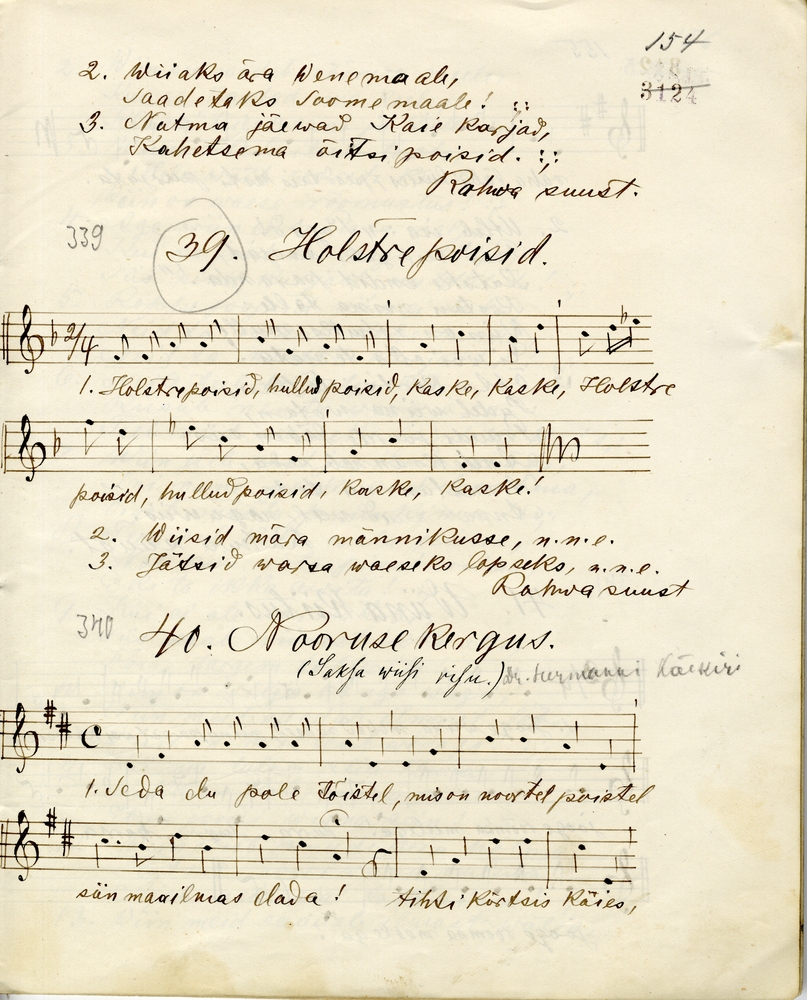 154
3124
2. Wiiaks ära Wenemaale,
Saadetaks Soomemaale! :;:
3. Nutma jäewad Kaie karjad,
Kahetsema õitsipoisid. :;:
Rahwa suust.
339
39. Holstre poisid.
2/4
1. Holstrepoisid, hullud poisid, Kaske, Kaske, Holstre
poisid, hullud poisid, Kaske, Kaske!
2. Wiisid mära männikusse, n.n.e.
3. Jätsid warsa waeseks lapseks, n.n.e.
Rahwa suust
340
40. Nooruse kergus.
(Saksa wiisi risu.) Dr. Hermanni Käekiri
C
1. Seda elu pole tõistel, mis on noortel poistel
siin maailmas elada! tihti kõrtsis käies,